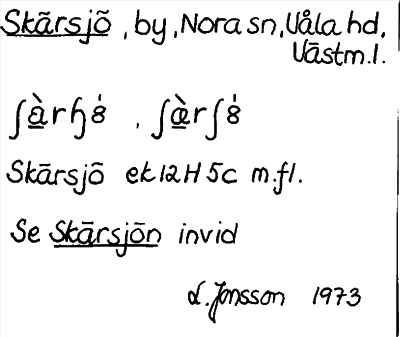 Skärsjö, by, Nora sn, Våla hd,
Västm. l.
ʃàrɧ8̍, ʃàrʃ8̍
Skärsjö ek 12H 5c m.fl.
Se Skärsjön invid
L. Jonsson 1973